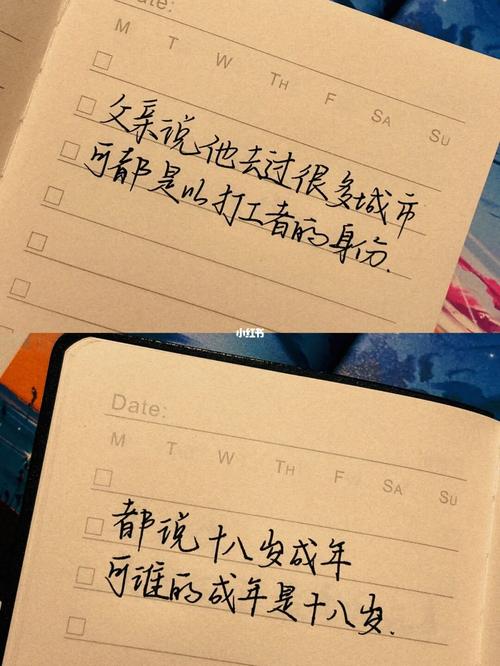 Date:
M T W TH F SA SU
父亲说他去过很多城市
可都是以打工者的身份.
小红书
Date:
M T W TH F SA SU
都说十八岁成年
可谁的成年是十八岁.